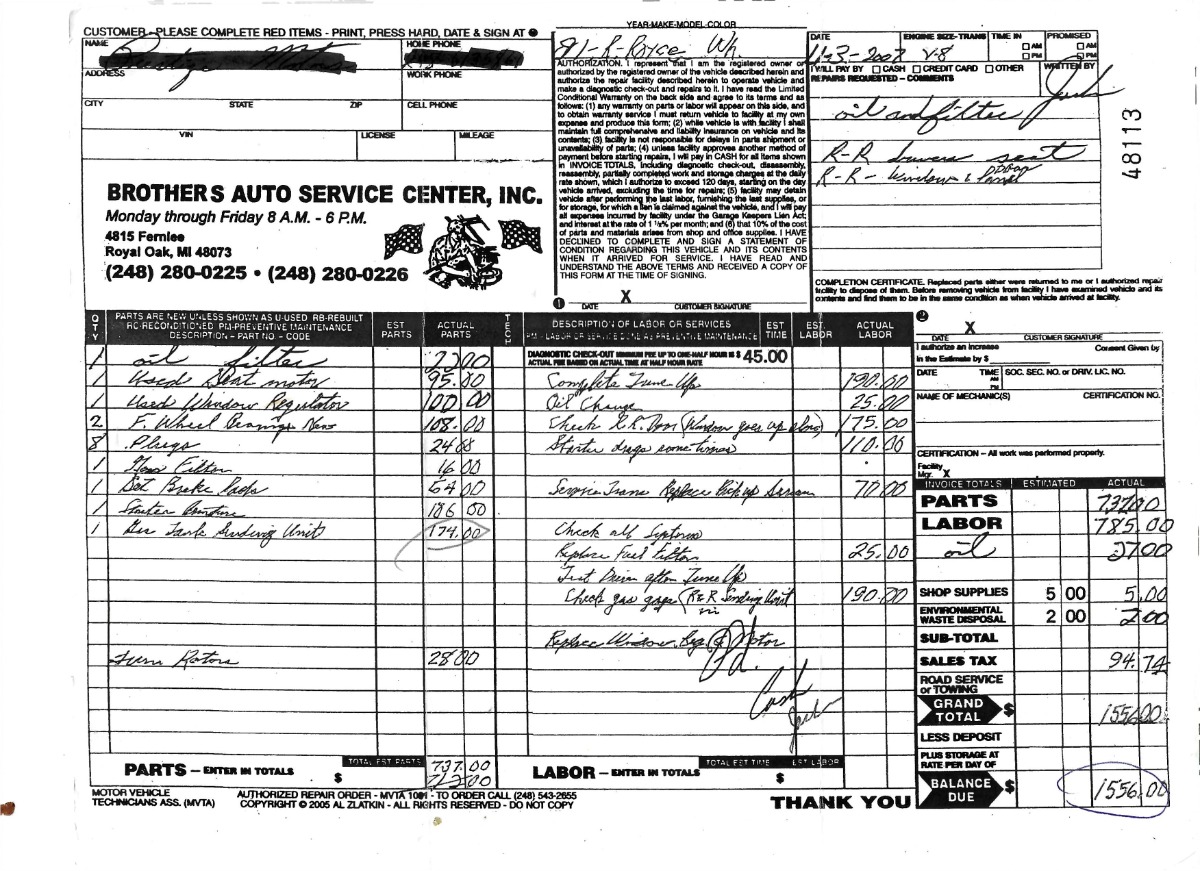 CUSTOMER - PLEASE COMPLETE RED ITEMS - PRINT, PRESS HARD, DATE & SIGN AT
NAME
HOME PHONE
ADDRESS
WORK PHONE
CITY STATE ZIP CELL PHONE
VIN LICENSE MILEAGE
BROTHERS AUTO SERVICE CENTER, INC.
Monday through Friday 8 A.M. - 6 P.M.
4815 Fernlee
Royal Oak, MI 48073
(248) 280-0225 • (248) 280-0226
YEAR-MAKE-MODEL-COLOR
81-R-Royce Wh.
AUTHORIZATION. I represent that I am the registered owner or
authorized by the registered owner of the vehicle described herein and
authorize the repair facility described herein to operate vehicle and
make a diagnostic check-out and repairs to it. I have read the Limited
Conditional Warranty on the back side and agree to its terms and as
follows: (1) any warranty on parts or labor will appear on this side, and
to obtain warranty service I must return vehicle to facility at my own
expense and produce this form; (2) while vehicle is with facility I shall
maintain full comprehensive and liability insurance on vehicle and its
contents; (3) facility is not responsible for delays in parts shipment or
unavailability of parts; (4) unless facility approves another method of
payment before starting repairs, I will pay in CASH for all items shown
in INVOICE TOTALS, including diagnostic check-out, disassembly,
reassembly, partially completed work and storage charges at the daily
rate shown, which I authorize to exceed 120 days, starting on the day
vehicle arrived, excluding the time for repairs; (5) facility may detain
vehicle after performing the last labor, furnishing the last supplies, or
for storage, for which a lien is claimed against the vehicle, and I will pay
all expenses incurred by facility under the Garage Keepers Lien Act;
and interest at the rate of 1 ½% per month; and (6) that 10% of the cost
of parts and materials arises from shop and office supplies. I HAVE
DECLINED TO COMPLETE AND SIGN A STATEMENT OF
CONDITION REGARDING THIS VEHICLE AND ITS CONTENTS
WHEN IT ARRIVED FOR SERVICE. I HAVE READ AND
UNDERSTAND THE ABOVE TERMS AND RECEIVED A COPY OF
THIS FORM AT THE TIME OF SIGNING.
X
DATE CUSTOMER SIGNATURE
DATE ENGINE SIZE-TRANS TIME IN PROMISED
V-8 AM PM AM PM
I WILL PAY BY CASH CREDIT CARD OTHER WRITTEN BY
REPAIRS REQUESTED - COMMENTS
oil and filter
R-R drivers seat
R-R - window & Door Panel
48113
COMPLETION CERTIFICATE. Replaced parts either were returned to me or I authorized repair
facility to dispose of them. Before removing vehicle from facility I have examined vehicle and its
contents and find them to be in the same condition as when vehicle arrived at facility.
X
DATE CUSTOMER SIGNATURE
QTY PARTS ARE NEW UNLESS SHOWN AS U-USED RB-REBUILT RC-RECONDITIONED PM-PREVENTIVE MAINTENANCE DESCRIPTION - PART NO. - CODE EST PARTS ACTUAL PARTS
TECH DESCRIPTION OF LABOR OR SERVICES PM - LABOR OR SERVICE DONE AS PREVENTIVE MAINTENANCE EST TIME EST LABOR ACTUAL LABOR
1 oil filter 22 00
DIAGNOSTIC CHECK-OUT MINIMUM FEE UP TO ONE-HALF HOUR IS $ 45.00
ACTUAL FEE BASED ON ACTUAL TIME AT HALF HOUR RATE
1 Used Seat motor 95.00 Complete Tune Up 190.00
1 Used Window Regulator 100 00 Oil Change 25.00
2 F. Wheel Bearings New 108.00 Check R.R. Door (Window goes up slow) 175.00
8 Plugs 24 88 Starter drags some times 110.00
1 Gas Filter 16 00
1 Set Brake Pads 54 00 Service Trans Replace Pick up Screen 70.00
1 Starter 186 00
1 Gas Tank Sending Unit 174.00 Check all Systems
Replace Fuel Filter 25.00
Test Driven after Tune Up
Check gas gage (R&R Sending Unit 190.00
Replace Window Reg & Motor
Turn Rotors 28 00
Pd.
Cash
I authorize an increase Consent Given by
in the Estimate by $
DATE TIME AM PM SOC. SEC. NO. or DRIV. LIC. NO.
NAME OF MECHANIC(S) CERTIFICATION NO.
CERTIFICATION - All work was performed properly.
Facility
Mgr. X
INVOICE TOTALS ESTIMATED ACTUAL
PARTS 737.00
LABOR 785.00
oil 27.00
SHOP SUPPLIES 5 00 5.00
ENVIRONMENTAL WASTE DISPOSAL 2 00 2.00
SUB-TOTAL
SALES TAX 94.74
ROAD SERVICE or TOWING
GRAND TOTAL $ 1556.00
LESS DEPOSIT
PLUS STORAGE AT RATE PER DAY OF
BALANCE DUE $ 1556.00
PARTS - ENTER IN TOTALS TOTAL EST PARTS $ 737.00
LABOR - ENTER IN TOTALS TOTAL EST TIME EST LABOR $
MOTOR VEHICLE
TECHNICIANS ASS. (MVTA)
AUTHORIZED REPAIR ORDER - MVTA 1001 - TO ORDER CALL (248) 543-2655
COPYRIGHT © 2005 AL ZLATKIN - ALL RIGHTS RESERVED - DO NOT COPY
THANK YOU